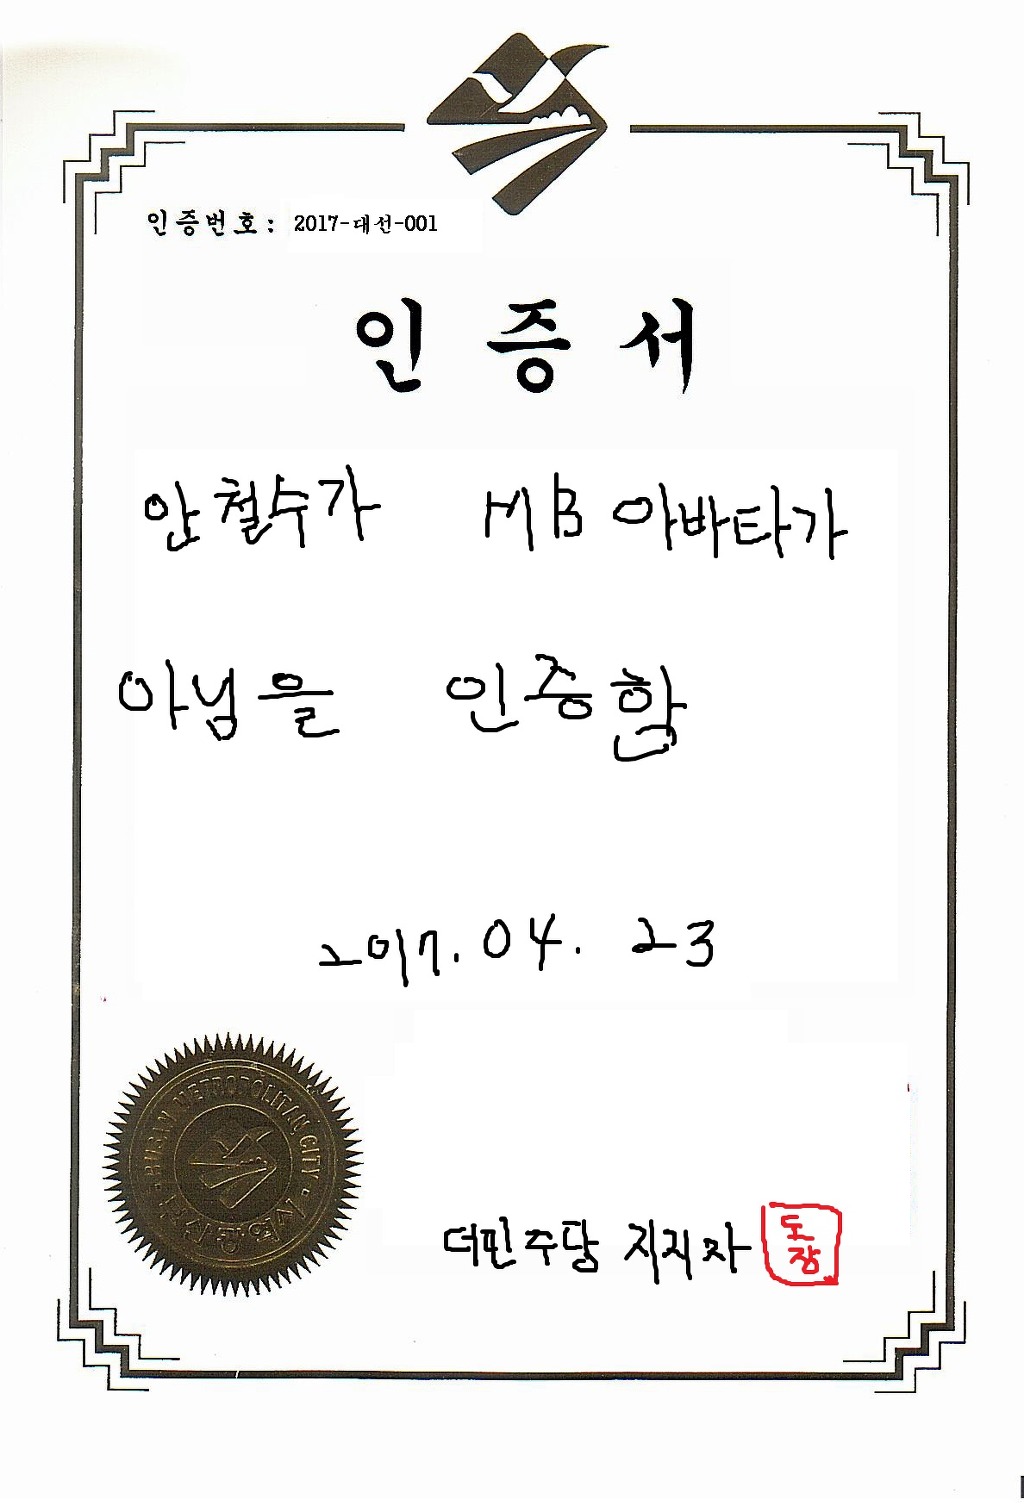 인증번호: 2017-대선-001
인 증 서
안철수가 MB 아바타가
아님을 인증함
2017. 04. 23
BUSAN METROPOLITAN CITY
부산광역시
더민주당 지지자
도장